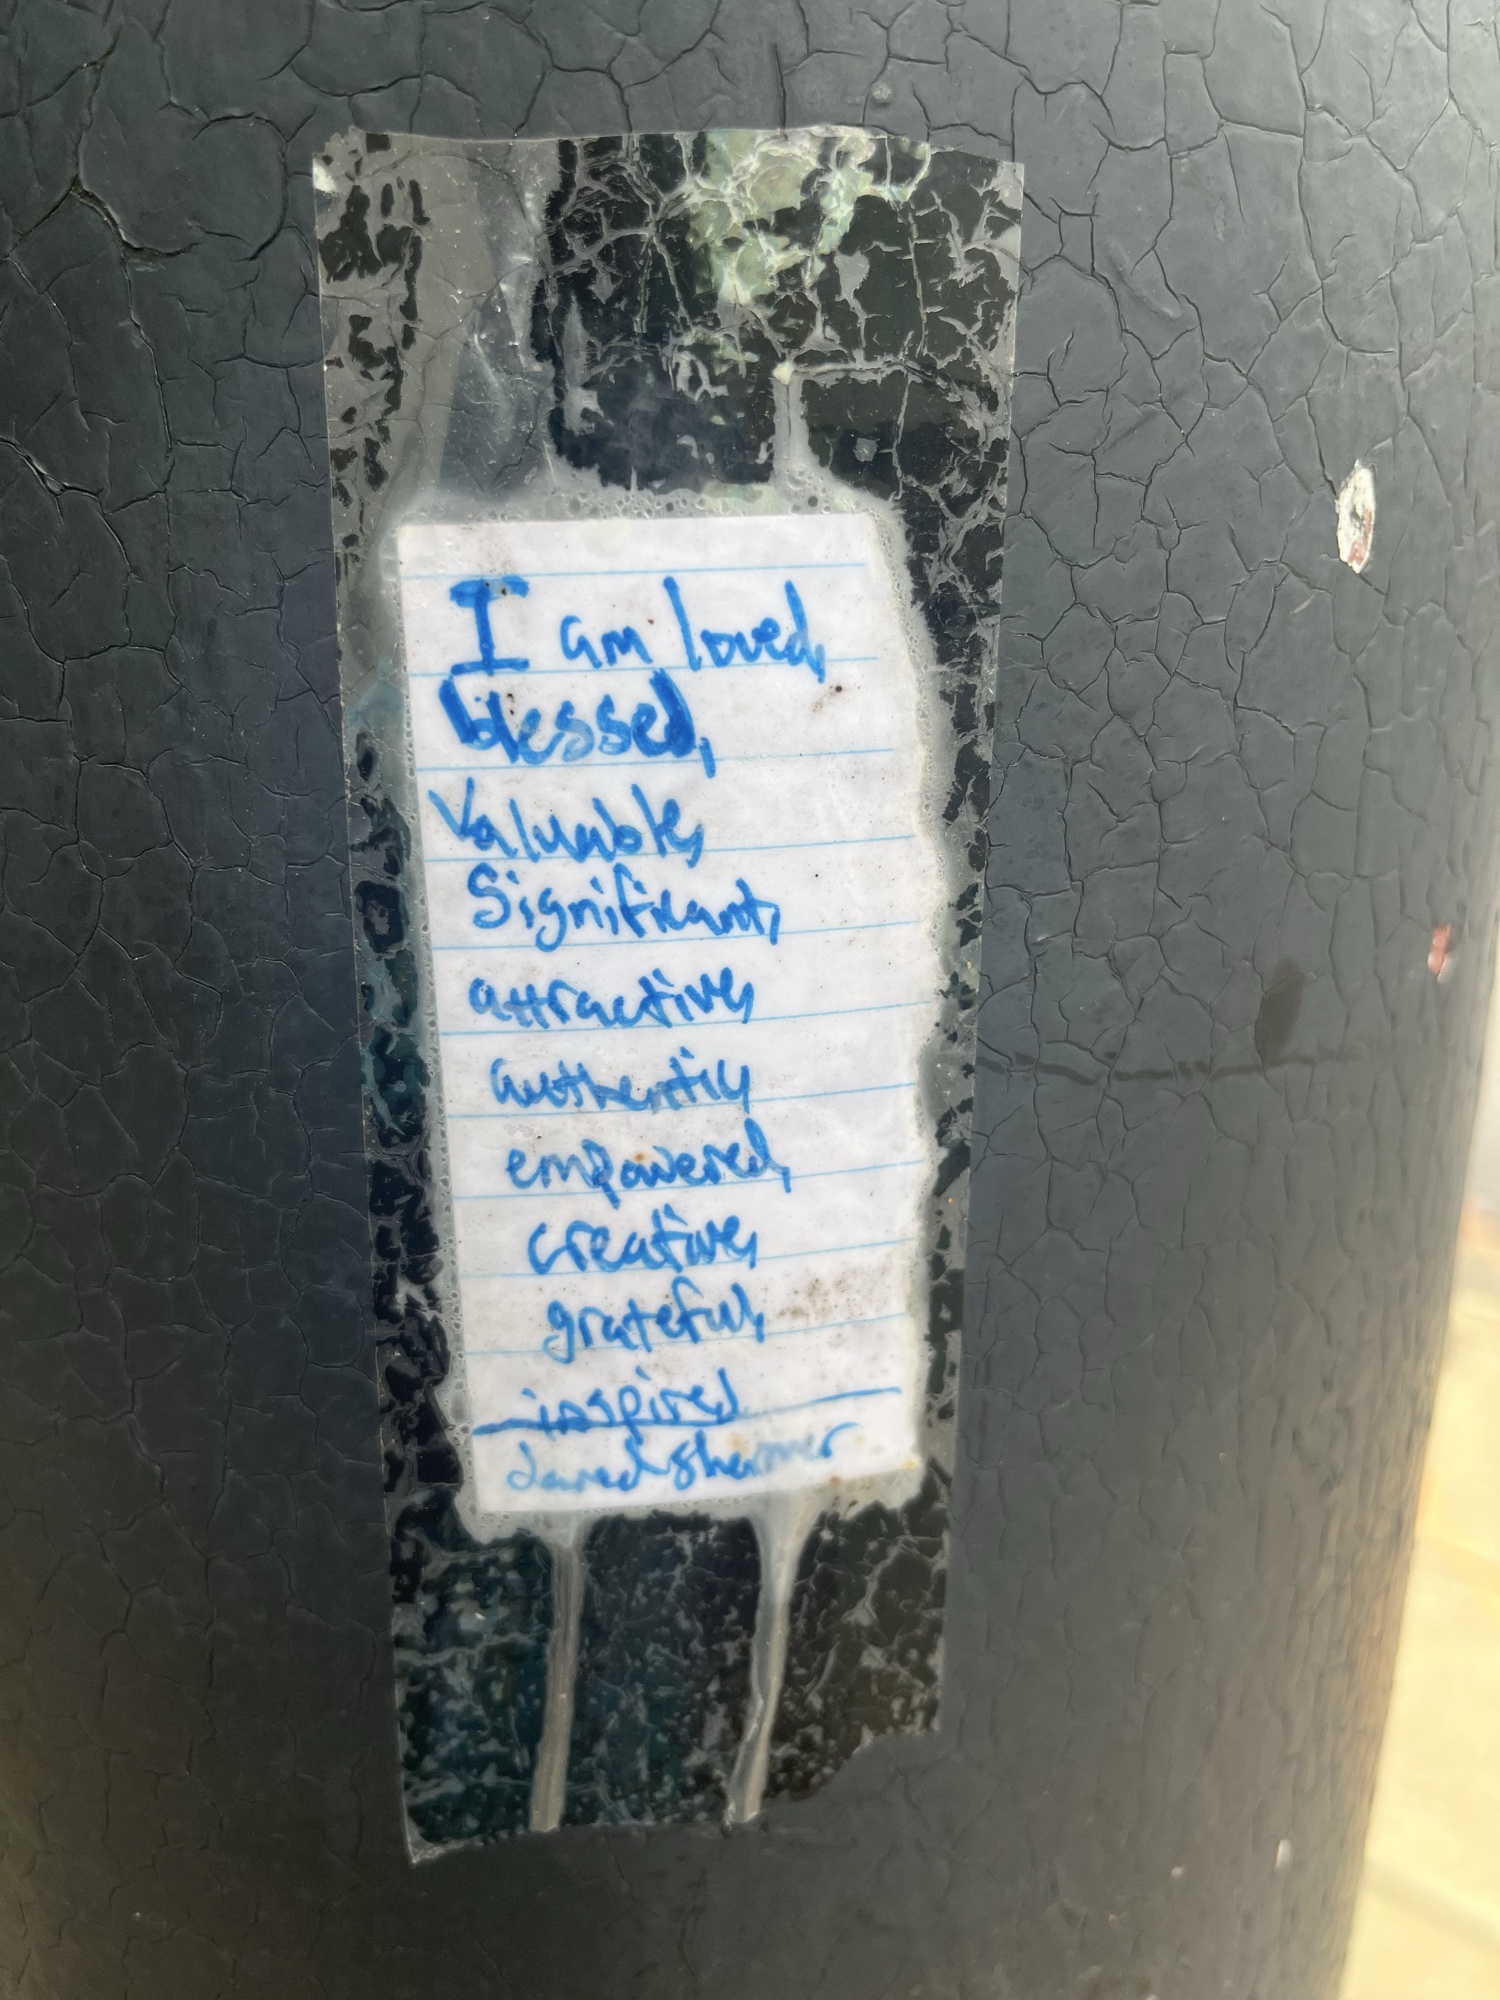 I am loved,
blessed,
Valuable,
Significant,
attractive,
authentic,
empowered,
creative,
grateful,
inspired